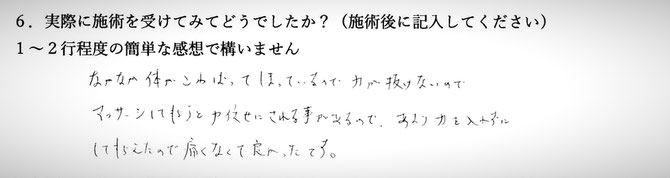 6．実際に施術を受けてみてどうでしたか？（施術後に記入してください）
1～2行程度の簡単な感想で構いません
なかなか体がこわばってしまっているので力が抜けないので
マッサージしてもらうと力任せにされる事があるので、あまり力を入れずに
してもらえたので痛くなくて良かったです。